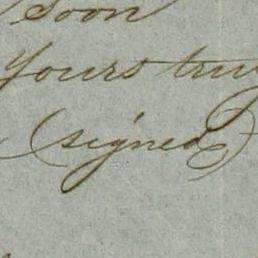 soon
Yours truly
(signed)